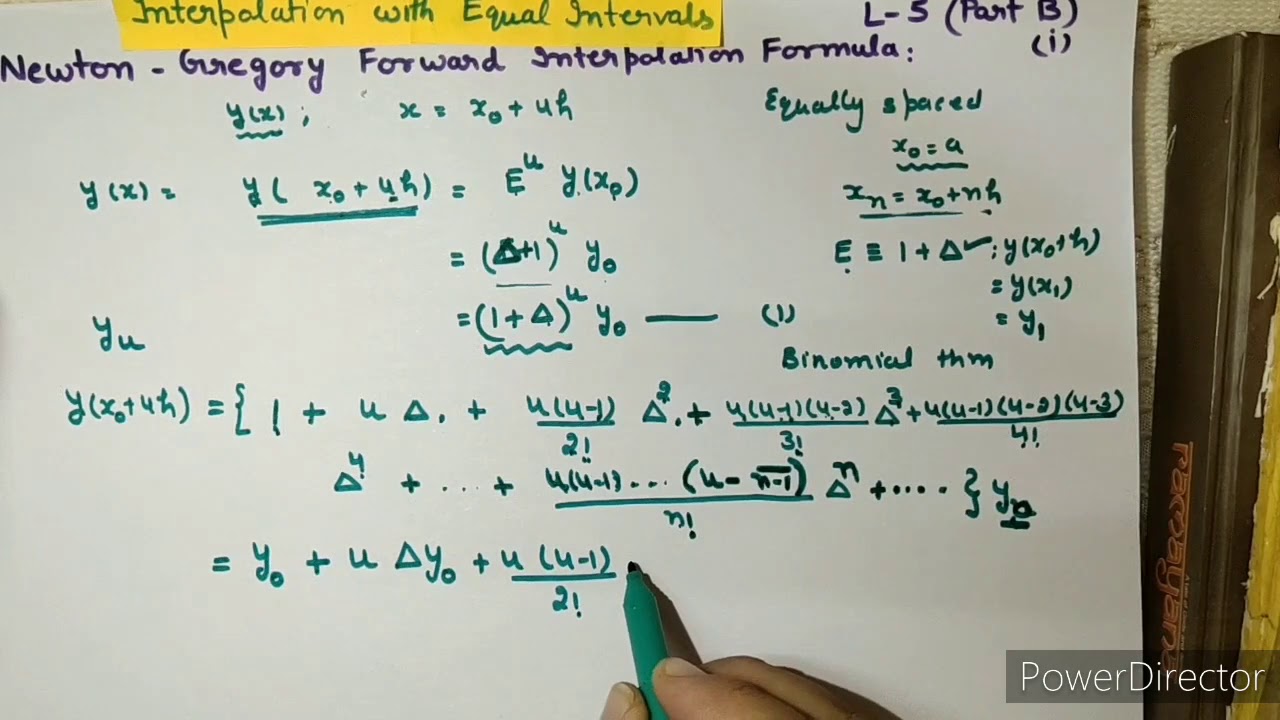 Interpolation with Equal Intervals
L-5 (Part B)
(i)
Newton - Gregory Forward Interpolation Formula:
y(x) ; x = x₀ + uh
Equally spaced
x₀ = a
y(x) = y( x₀ + uh) = Eᵘ y(x₀)
xₙ = x₀ + nh
= (Δ+1)ᵘ y₀
E ≡ 1 + Δ ; y(x₀+h)
= y(x₁)
yᵤ = (1 + Δ)ᵘ y₀ —— (1)
= y₁
Binomial thm
y(x₀+uh) = { 1 + u Δ. + u(u-1)/2! Δ². + u(u-1)(u-2)/3! Δ³ + u(u-1)(u-2)(u-3)/4!
Δ⁴ + ... + u(u-1)...(u- n-1)/n! Δⁿ + .... } y₀
= y₀ + u Δy₀ + u (u-1)/2!
PowerDirector